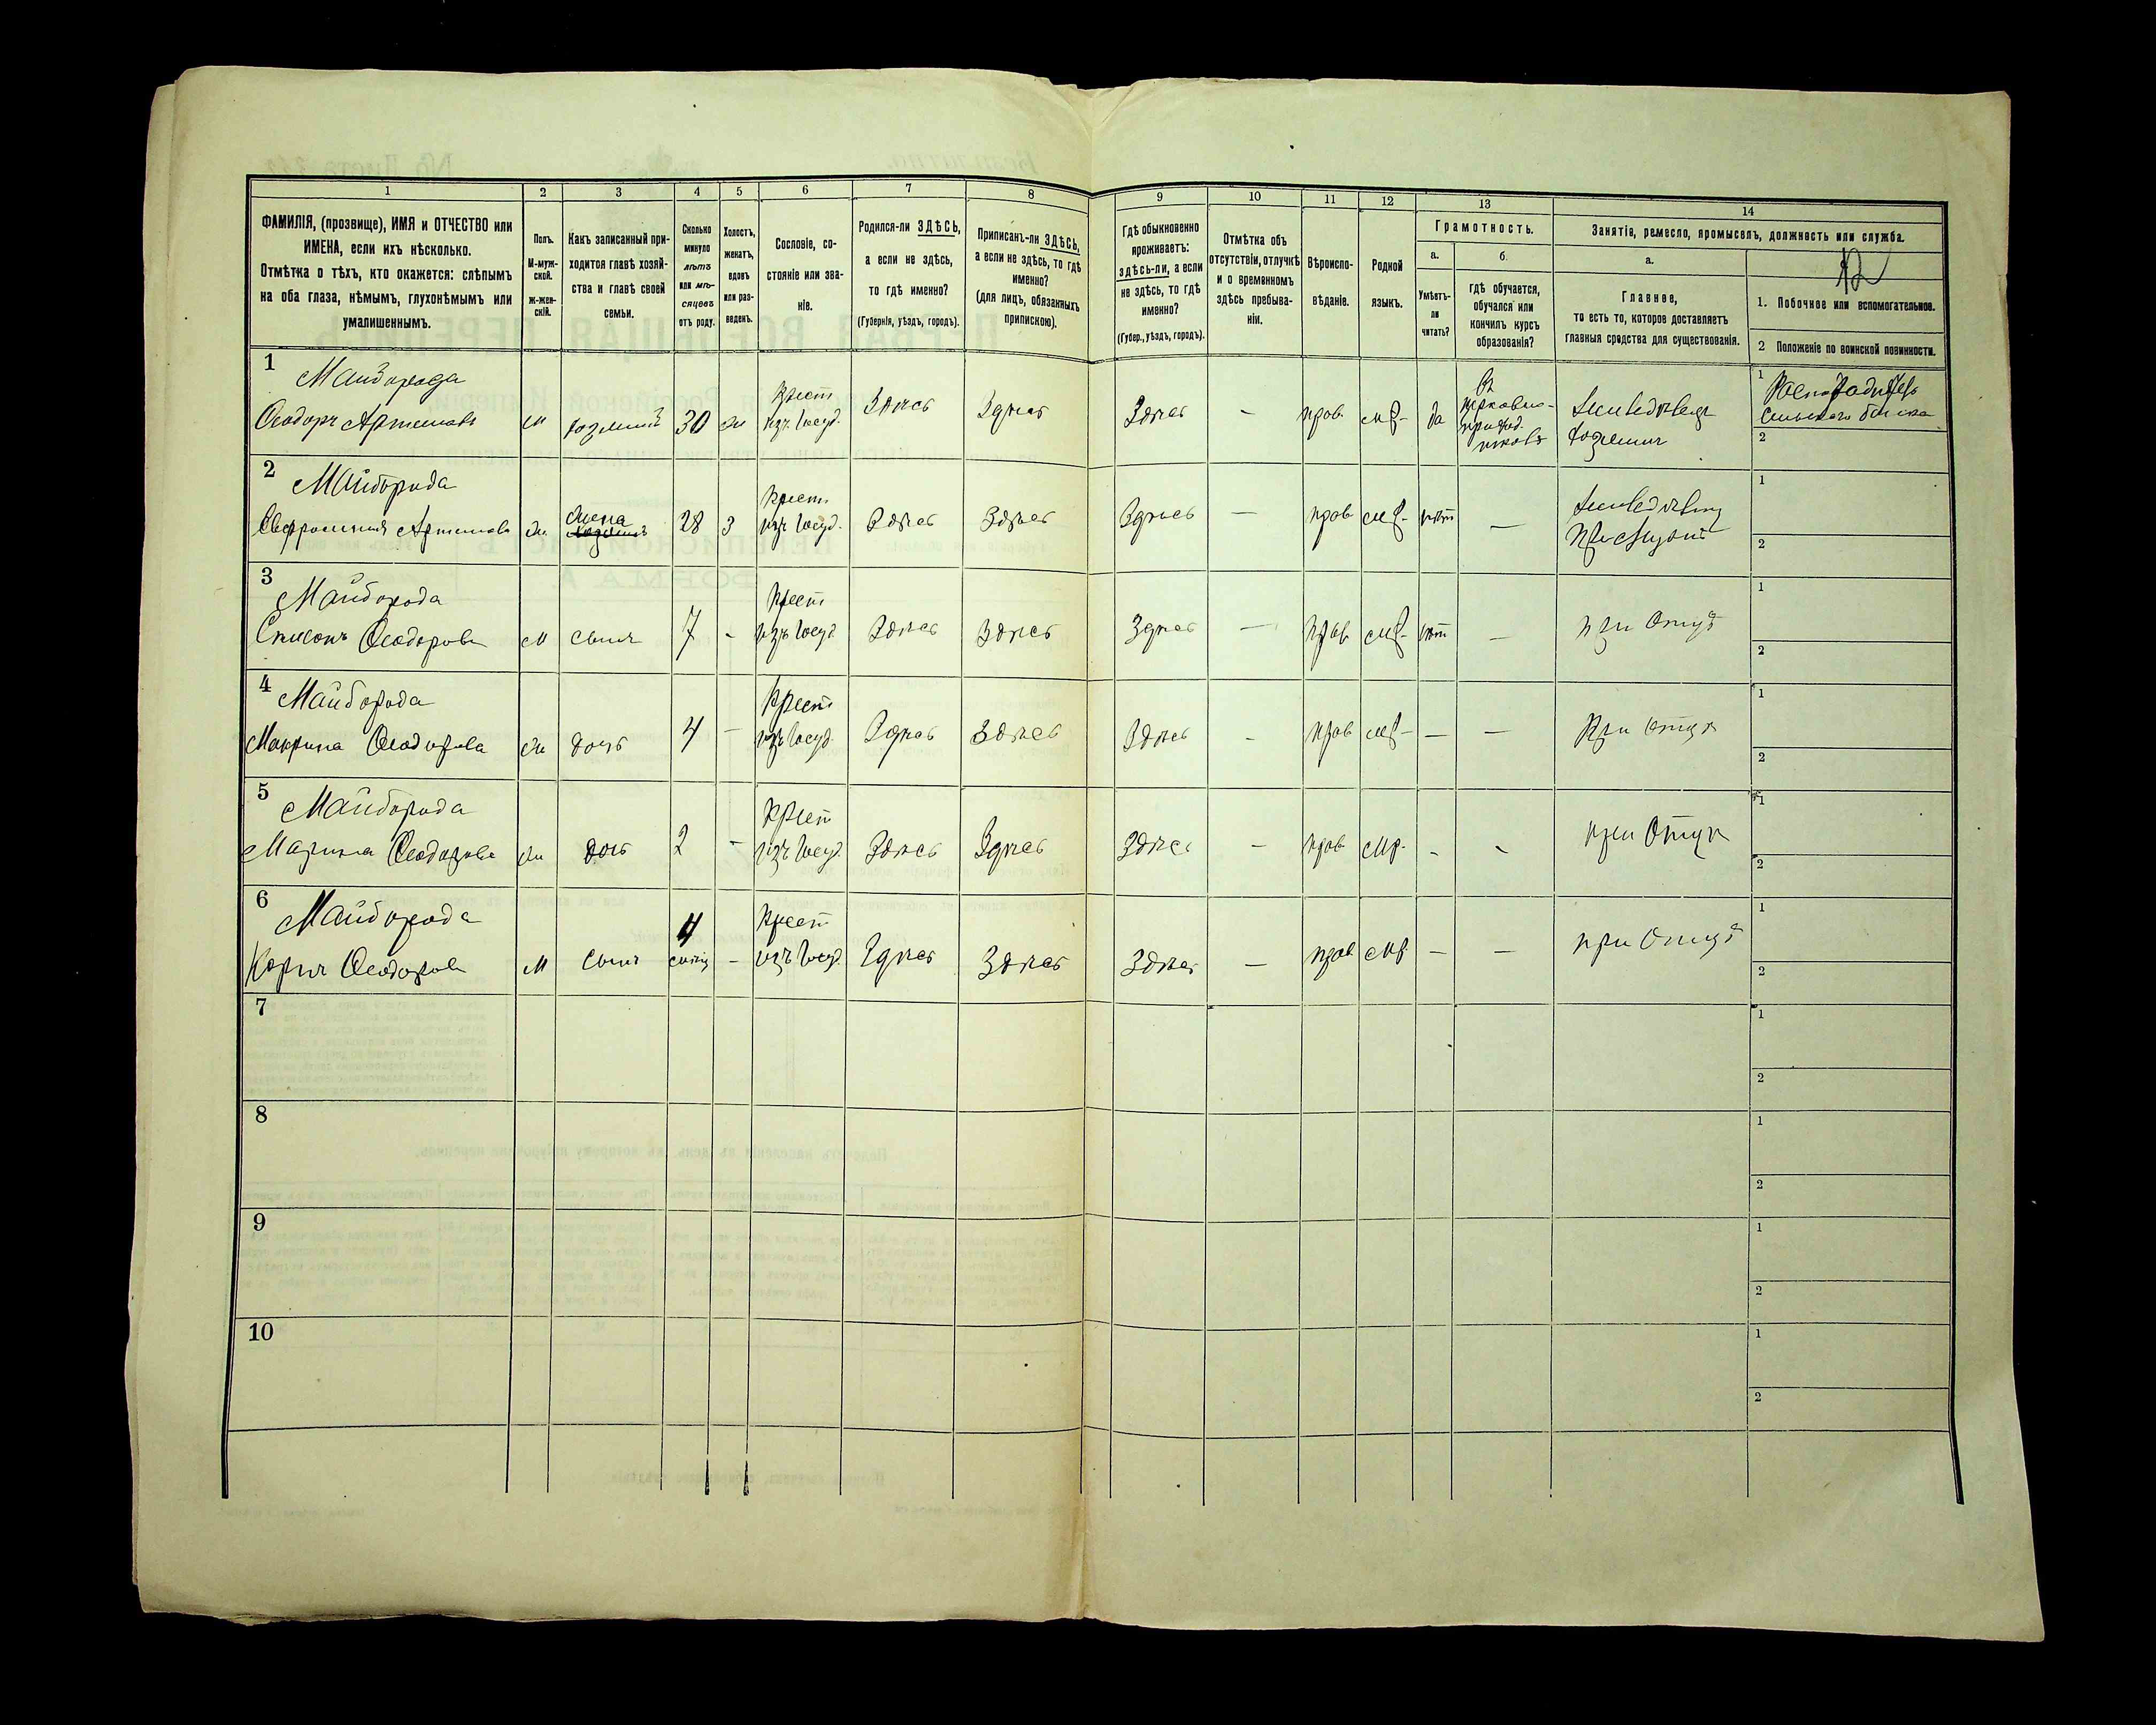 1 2 3 4 5 6 7 8 9 10 11 12 13 14
ФАМИЛІЯ, (прозвище), ИМЯ и ОТЧЕСТВО или
ИМЕНА, если ихъ нѣсколько.
Отмѣтка о тѣхъ, кто окажется: слѣпымъ
на оба глаза, нѣмымъ, глухонѣмымъ или
умалишеннымъ.
Полъ.
М-муж-
ской.
ж-жен-
скій.
Какъ записанный при-
ходится главѣ хозяй-
ства и главѣ своей
семьи.
Сколько
минуло
лѣтъ
или мѣ-
сяцевъ
отъ роду.
Холостъ,
женатъ,
вдовъ
или раз-
веденъ.
Сословіе, со-
стояніе или зва-
ніе.
Родился-ли ЗДѢСЬ,
а если не здѣсь,
то гдѣ именно?
(Губернія, уѣздъ, городъ).
Приписанъ-ли ЗДѢСЬ,
а если не здѣсь, то гдѣ
именно?
(для лицъ, обязанныхъ
припискою).
Гдѣ обыкновенно
проживаетъ:
здѣсь-ли, а если
не здѣсь, то гдѣ
именно?
(Губер., уѣздъ, городъ).
Отмѣтка объ
отсутствіи, отлучкѣ
и о временномъ
здѣсь пребыва-
ніи.
Вѣроиспо-
вѣданіе.
Родной
языкъ.
Грамотность.
а.
Умѣетъ-
ли
читать?
б.
гдѣ обучается,
обучался или
кончилъ курсъ
образованія?
Занятія, ремесло, промыселъ, должность или служба.
а.
Главное,
то есть то, которое доставляетъ
главныя средства для существованія.
12
1. Побочное или вспомогательное.
2 Положеніе по воинской повинности.
1
Майборода
Ѳеодоръ Артемовъ
м
хозяинъ
30
ж
Крест
изъ Госуд.
Здѣсь
Здѣсь
Здѣсь
—
прав
мр-
да
въ
церковно-
приход.
школѣ
Земледѣлецъ
хозяинъ
1
сельского банка
2
2
Майборода
Евфросинія Артемова
ж
жена
28
З
Крест
изъ Госуд.
Здѣсь
Здѣсь
Здѣсь
—
прав
мр-
нѣт
—
1
2
3
Майборода
Симеонъ Ѳеодоровъ
м
сынъ
7
-
Крест
изъ Госуд
Здѣсь
Здѣсь
Здѣсь
—
прав
мр-
нѣт
—
при Отцѣ
1
2
4
Майборода
Макрина Ѳеодорова
ж
дочь
4
—
Крест
изъ Госуд.
Здѣсь
Здѣсь
Здѣсь
-
прав
мр-
—
—
при отцѣ
1
2
5
Майборода
Марина Ѳеодорова
ж
дочь
2
-
Крест
изъ Госуд.
Здѣсь
Здѣсь
Здѣсь
—
прав
мр.
-
-
при Отцѣ
1
2
6
Майборода
Ѳеодоровъ
м
сынъ
4
-
Крест
изъ Госуд.
Здѣсь
Здѣсь
Здѣсь
—
прав
мр.
—
—
при Отцѣ
1
2
7
1
2
8
1
2
9
1
2
10
1
2